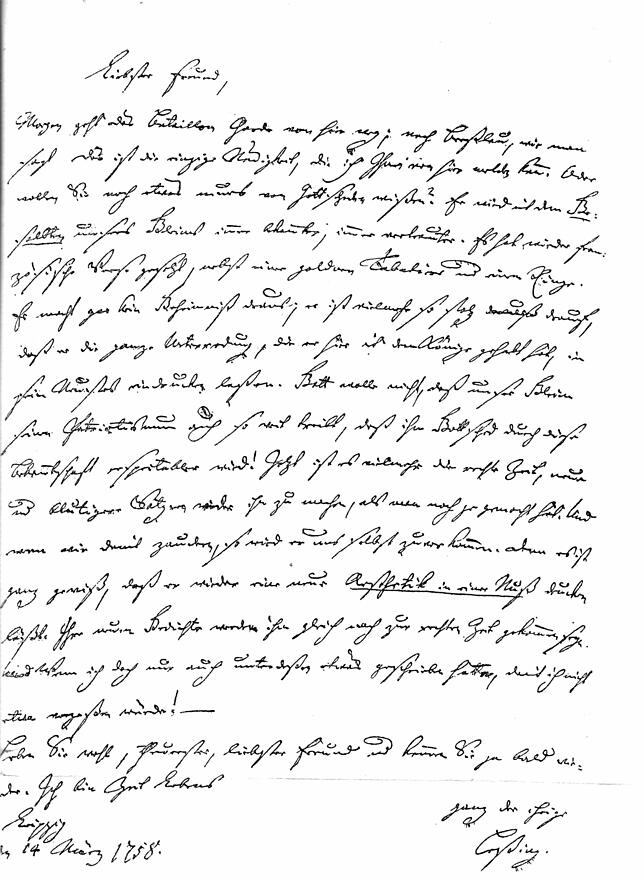 Liebster Freund,
Morgen geht das Bataillon Garde von hier weg; nach Breßlau, wie man
sagt. Das ist die einzige Neuigkeit, die ich Ihnen von hier melden kan. Oder
wollen Sie noch etwas neues von Gottscheden wißen? Er wird mit dem
immer bekannter, immer vertrauter. Er hat wieder fran-
zösische Verse, nebst einer goldnen Tabatiere und einem Ringe.
Er macht gar kein Geheimniß draus; er ist vielmehr so stolz darauf,
daß er die ganze Unterredung, die er hier mit dem Könige gehabt hat, in
sein Neuestes eindrucken laßen. Gott wolle nicht, daß unser
seinen Patriotismum auch so weit treibt, daß ihm Gottsched durch diese
Bekantschaft respectabler wird! Jetzt ist es vielmehr die rechte Zeit, neue
und blutigere Satyren wider ihn zu machen, als man noch je gemacht hat. Und
wenn wir damit zaudern, so wird er uns selbst zuvor kommen. Denn es ist
ganz gewiß, daß er wieder eine neue Aesthetik in einer Nuß drucken
läßt. Ihre neuen Gedichte werden ihm gleich noch zur rechten Zeit gekommen seyn.
Und wenn ich doch nur auch unterdeßen etwas geschrieben hätte, damit ich nicht
etwa vergeßen würde! —
Leben Sie wohl, theuerster, liebster Freund und kommen Sie ja bald wie-
der. Ich bin Zeit Lebens
ganz der Ihrige
Leipzig
den 14 März 1758.
Leßing.